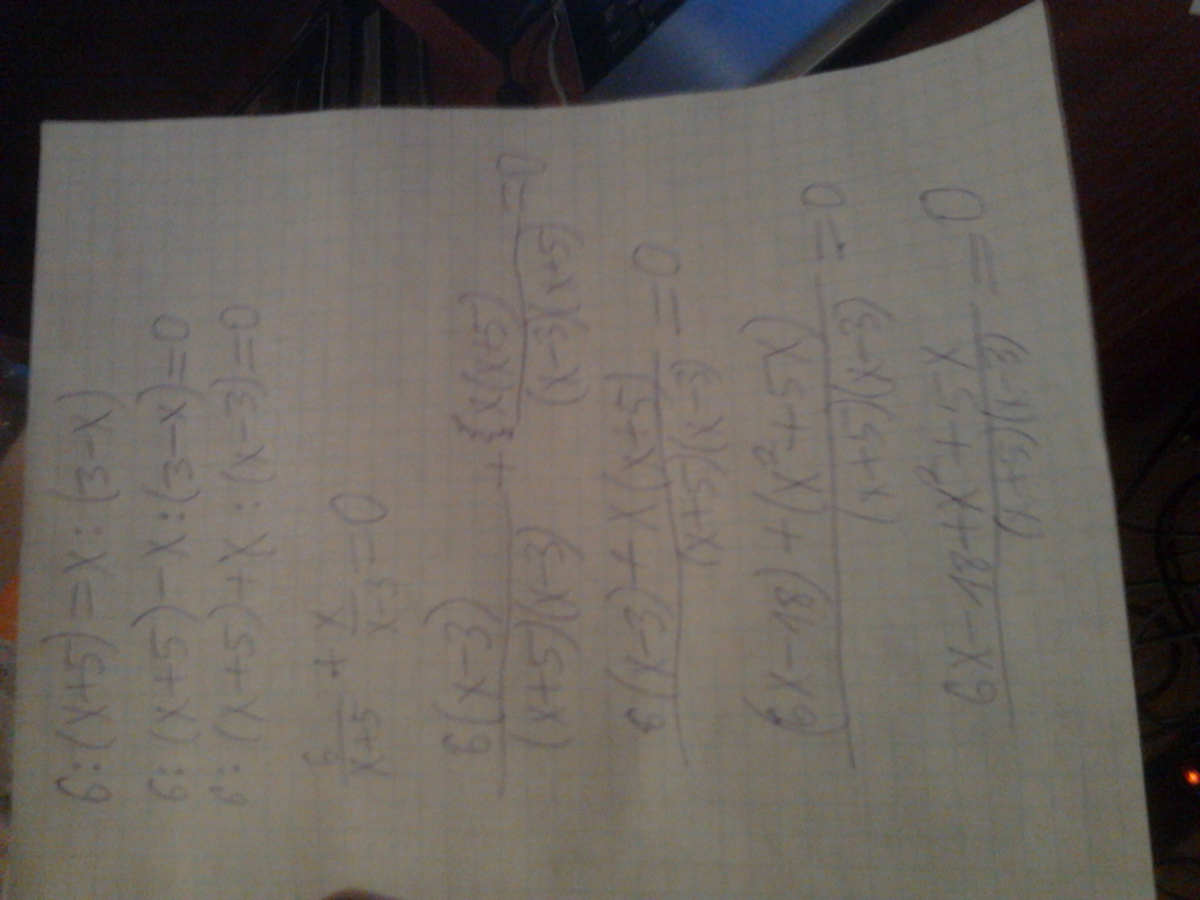 6:(x+5)=x:(3-x)
6:(x+5)-x:(3-x)=0
6:(x+5)+x:(x-3)=0
6/(x+5) + x/(x-3) =0
6(x-3)/((x+5)(x-3)) + x(x+5)/((x-3)(x+5)) =0
(6(x-3)+x(x+5))/((x+5)(x-3)) =0
((6x-18)+(x²+5x))/((x+5)(x-3)) =0
(6x-18+x²+5x)/((x+5)(x-3)) =0